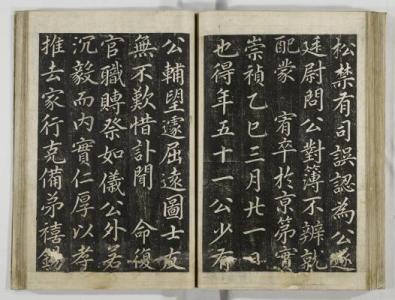 松禁有司誤認為公逐
廷尉問公對簿不辨就
配蒙　宥卒於京第實
崇禎乙巳三月廿一日
也得年五十一公少有
公輔望遽屈遠圖士友
無不歎惜訃聞　命復
官職賻祭如儀公外若
沉毅而內實仁厚以孝
推去家行克備弟禧錫